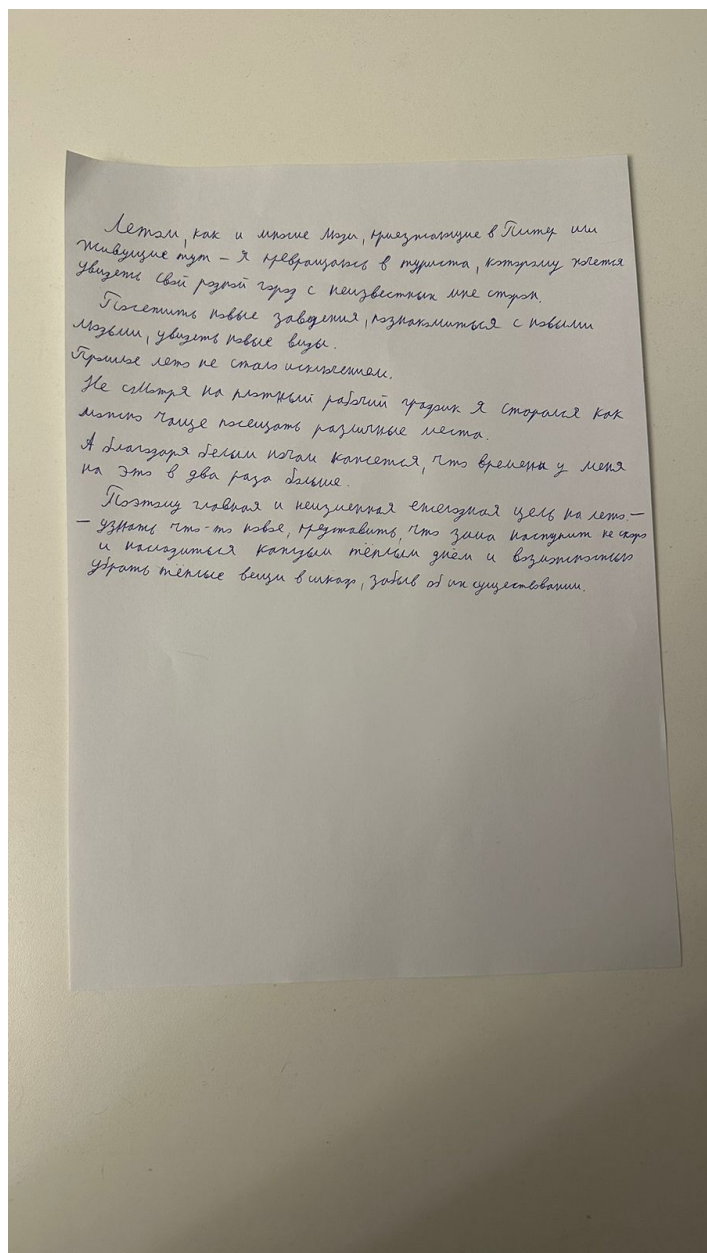 Летом, как и многие люди, приезжающие в Питер или
живущие тут – я превращаюсь в туриста, которому хочется
увидеть свой родной город с неизвестных мне сторон.
Посетить новые заведения, познакомиться с новыми
людьми, увидеть новые виды.
Прошлое лето не стало исключением.
Не смотря на плотный рабочий график я старался как
можно чаще посещать различные места.
А благодаря белым ночам кажется, что времени у меня
на это в два раза больше.
Поэтому главная и неизменная ежегодная цель на лето –
– узнать что-то новое, представить, что зима наступит не скоро
и насладиться каждым тёплым днём и возможностью
убрать тёплые вещи в шкаф, забыв об их существовании.